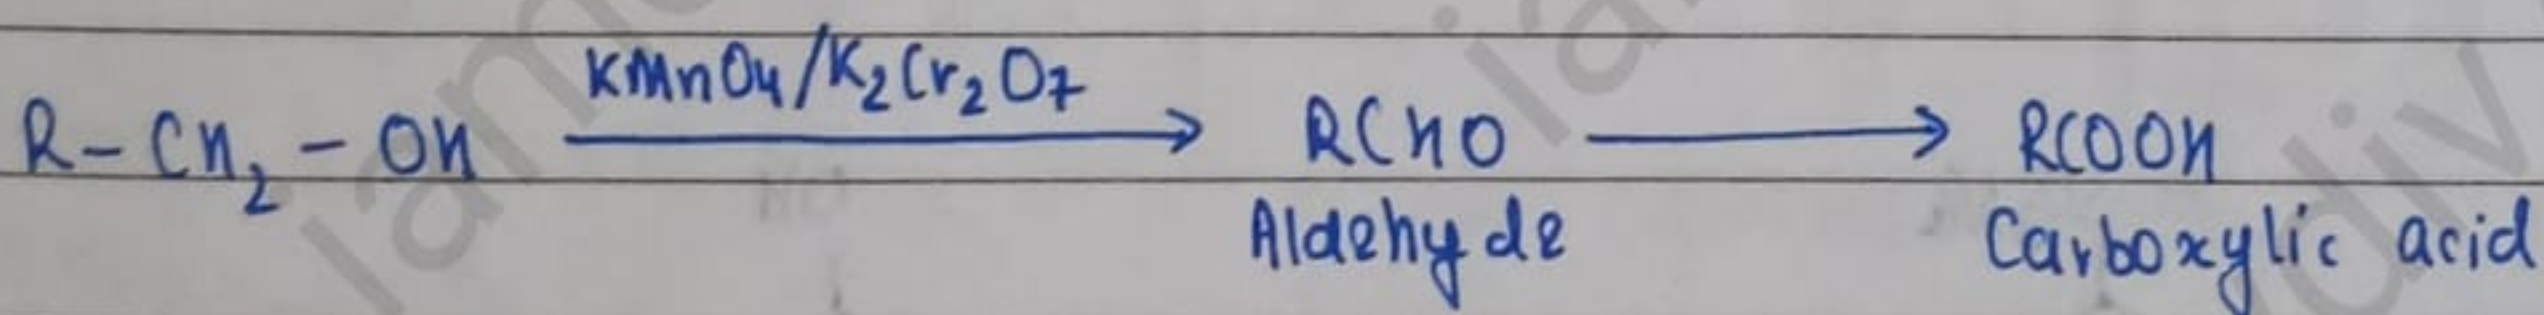 R - CH₂ - OH KMnO₄/K₂Cr₂O₇ → RCHO → RCOOH
Aldehyde Carboxylic acid